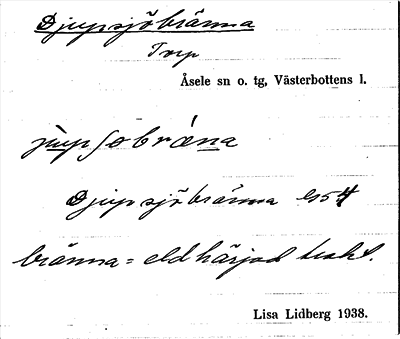 Djupsjöbränna
Torp
Åsele sn o. tg, Västerbottens l.
Djupsjöbränna
bränna = eldhärjad trakt.
Lisa Lidberg 1938.